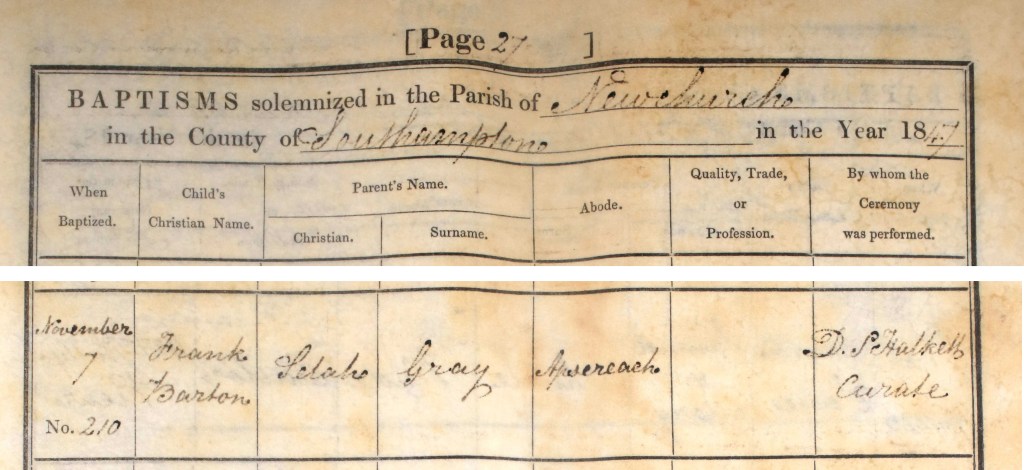 [Page 27 ]
BAPTISMS solemnized in the Parish of Newchurch
in the County of Southampton in the Year 1847
When Baptized.
Child's Christian Name.
Parent's Name.
Christian.
Surname.
Abode.
Quality, Trade, or Profession.
By whom the Ceremony was performed.
November
7
No. 210
Frank
Barton
Selah
Gray
Apsereach
D. S Halkett
Curate